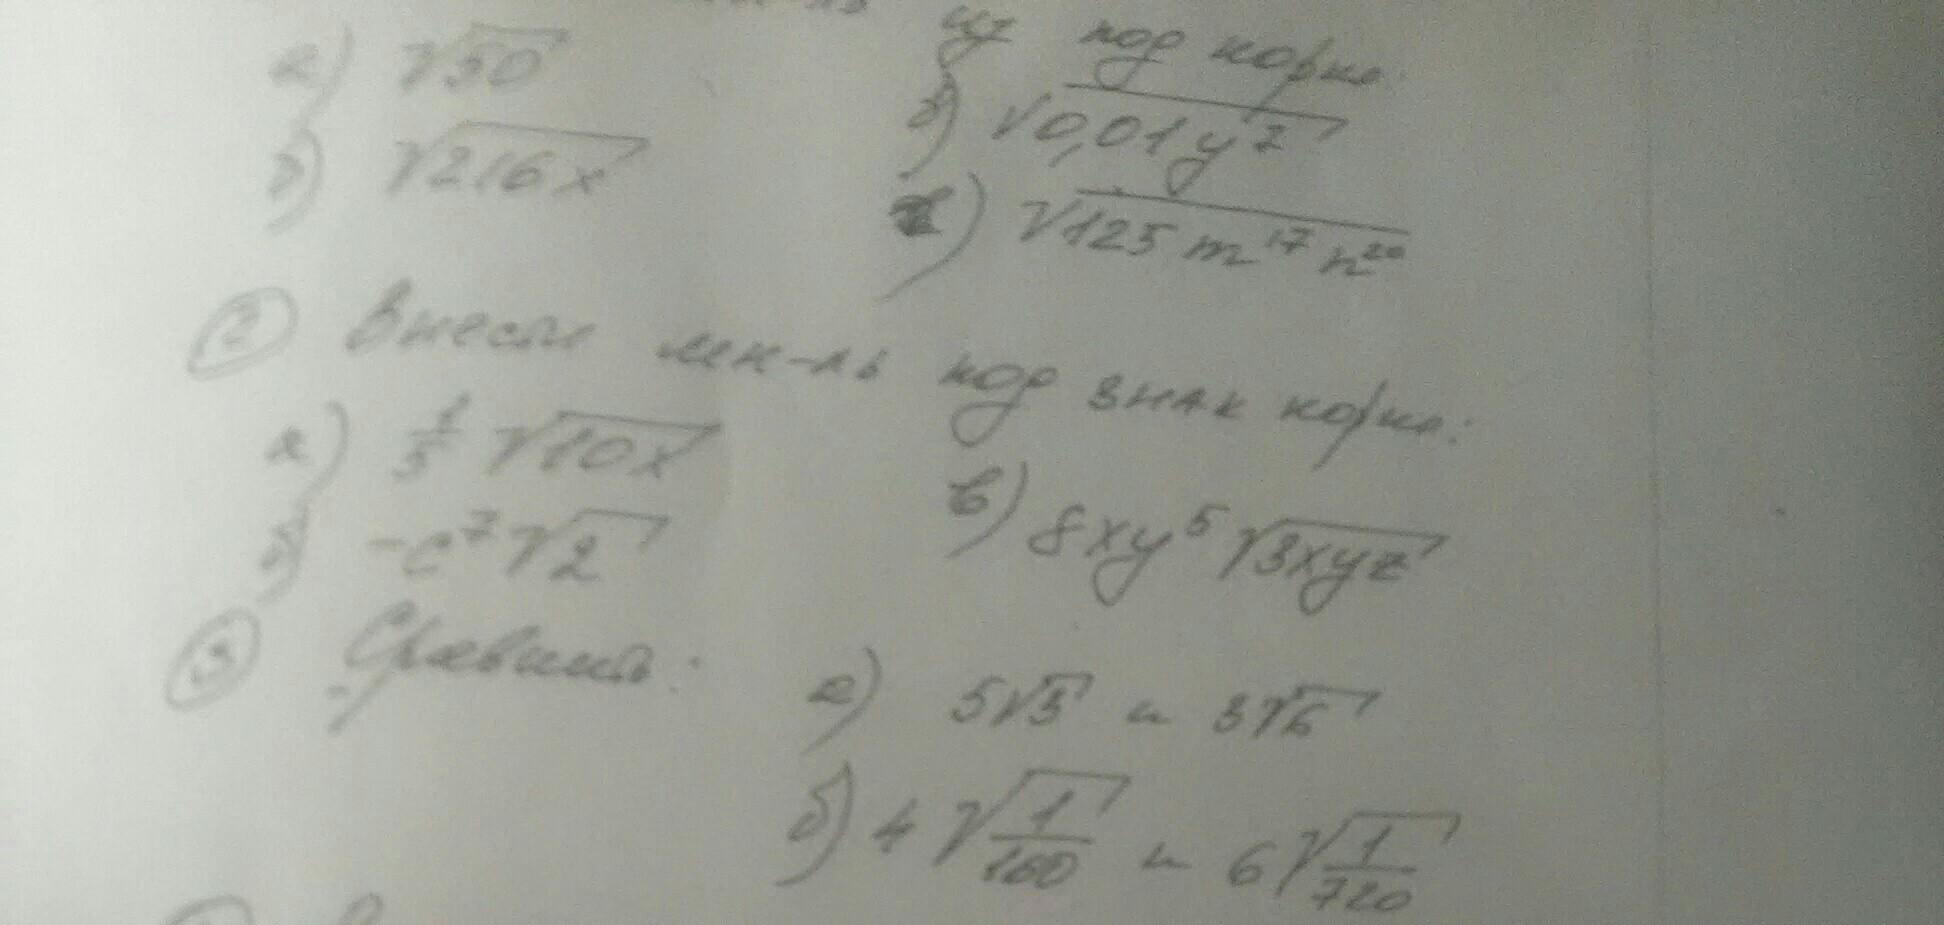 из под корня
а) √50
б) √0,01y⁷
б) √216x
г) √125m¹⁷n²⁰
② Внести мн-ль под знак корня:
а) 1/5 √10x
в) 8xy⁵√3xyz
б) -c⁷√2
③ Сравнить: а) 5√3 и 3√6
б) 4√1/160 и 6√1/720